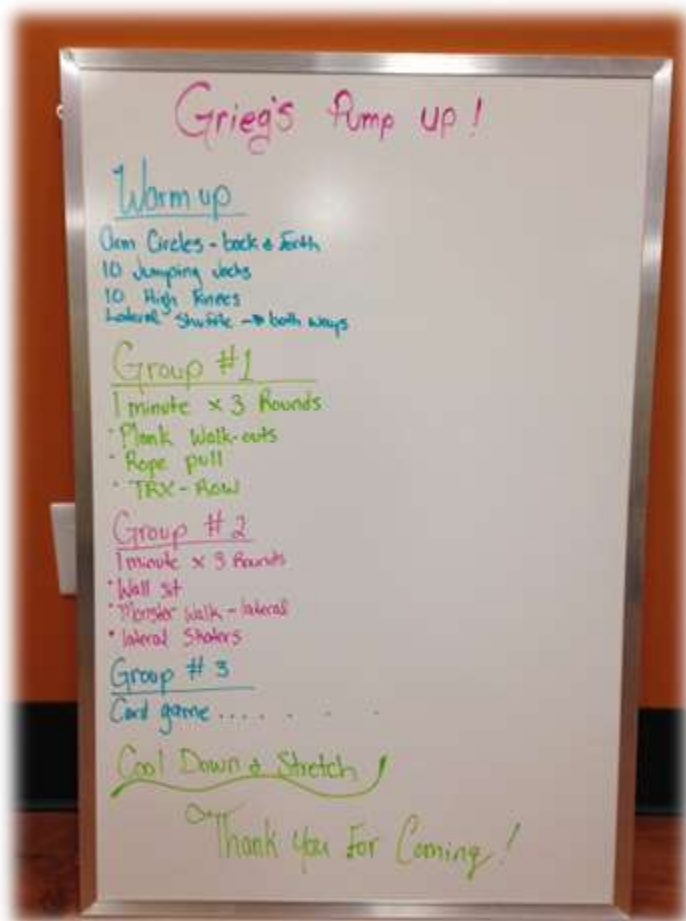 Grieg's Pump up!
Warm up
Arm Circles - back & forth
10 Jumping Jacks
10 High Knees
Lateral Shuffle → both ways
Group #1
1 minute x 3 Rounds
• Plank Walk-outs
• Rope pull
• TRX - Row
Group # 2
1 minute x 3 Rounds
• Wall sit
• Monster Walk - lateral
• lateral Skaters
Group # 3
Card game .... . . .
Cool Down & Stretch
Thank You For Coming!